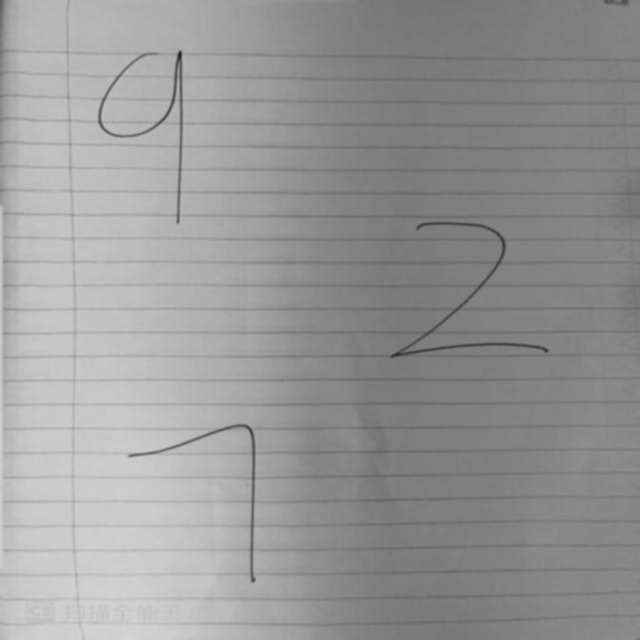 9
2
7
CS 扫描全能王